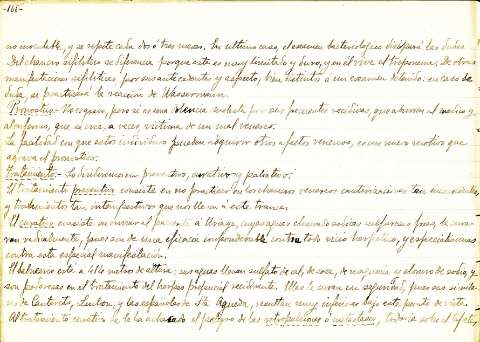 -166-
no incurable, y se repite cada dos ó tres meses. En último caso, el examen bacteriológico disipará las dudas.
Del chancro sifilítico se diferencia porque este es muy limitado y duro, y en él vive el treponema. De otras
manifestaciones sifilíticas por sus antecedentes y aspecto, bien distintos á un examen detenido: en caso de
duda, se practicará la reacción de Wassermann.
Pronóstico.- No es grave, pero si es una dolencia molesta por sus frecuentes recidivas que aburren al médico y
al enfermo, que se cree, a veces, víctima de un mal venéreo.
La facilidad con que estos individuos pueden adquirir otros afectos venéreos, es un nuevo motivo que
agrava el pronóstico.
Tratamiento.- Lo dividiremos en preventivo, curativo y paliativo.
El tratamiento preventivo consiste en no practicar en los chancros venéreos cauterizaciones
y tratamientos tan intempestivos que nos lleven á este trance.
El curativo consiste en enviar al paciente á Uriage, cuyas aguas cloruradas sódicas sulfurosas frías, le curarán
radicalmente, pues son de una eficacia imponderable contra todo vicio herpético, y especialísima
contra esta especial manifestación.
El balneario está a 414 metros de altura: sus aguas llevan sulfato de cal, de sosa, de magnesia y cloruro de sodio, y
son poderosas en el tratamiento del herpes prepucial recidivante. Ellas le curan con seguridad, pues sus similares
de Cauterets, Luchon, y las españolas de Sta. Agueda, resultan muy inferiores bajo este punto de vista.
Al tratamiento curativo se le ha achacado el peligro de las retropulsiones ó metástasis, todavía sobre el